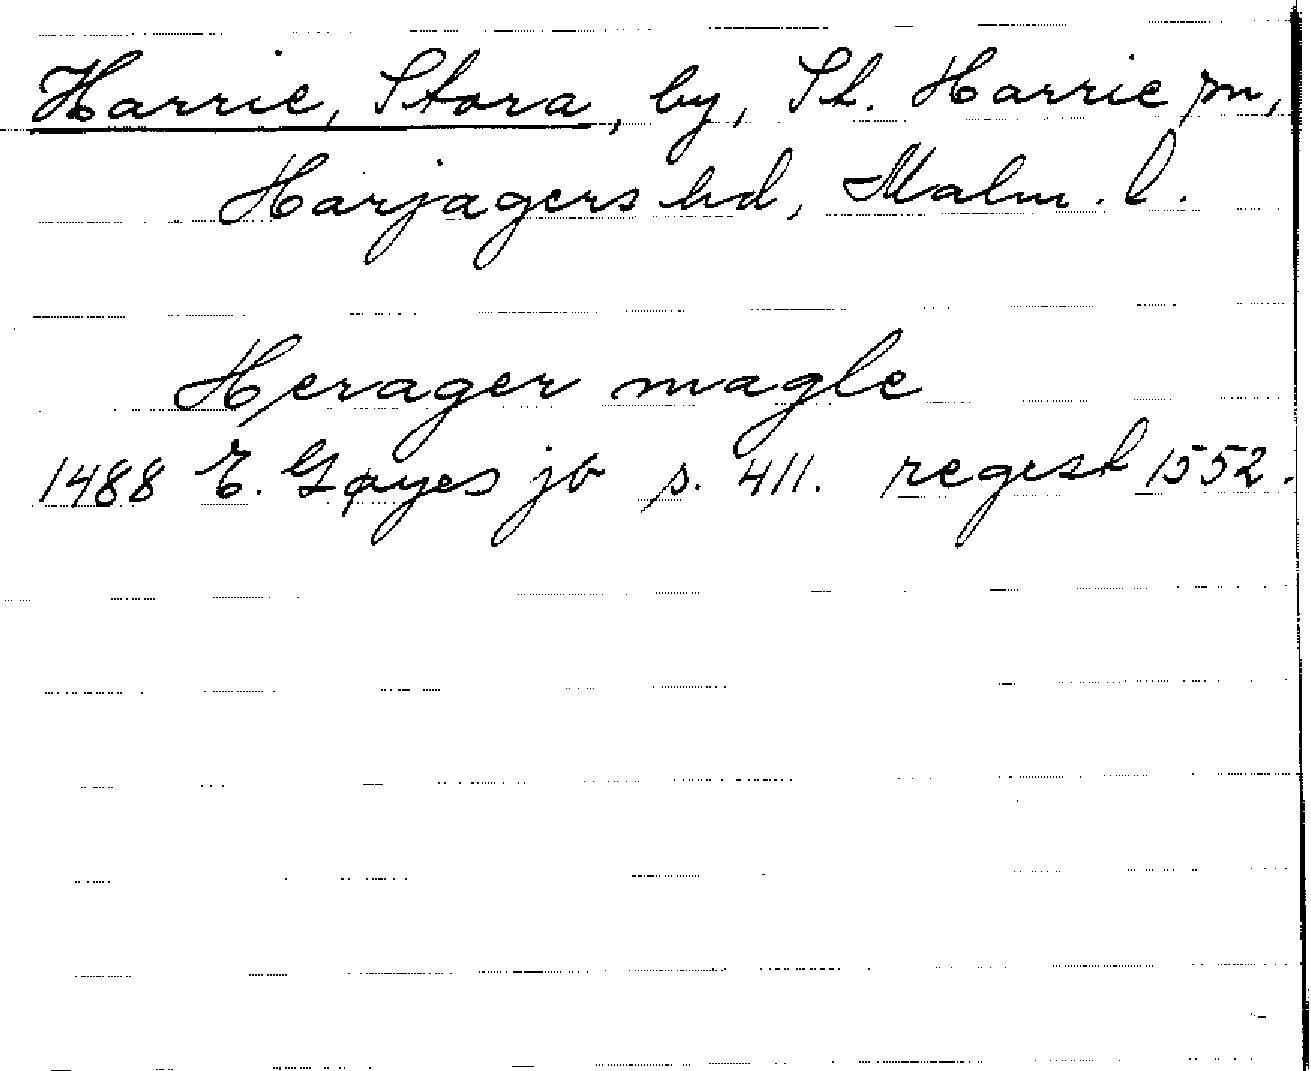 Harrie, Stora, by, St. Harrie sn,
Harjagers hd, Malm. l.
Herager magle
1488 E. Gøyes jb s. 411. regest 1552.